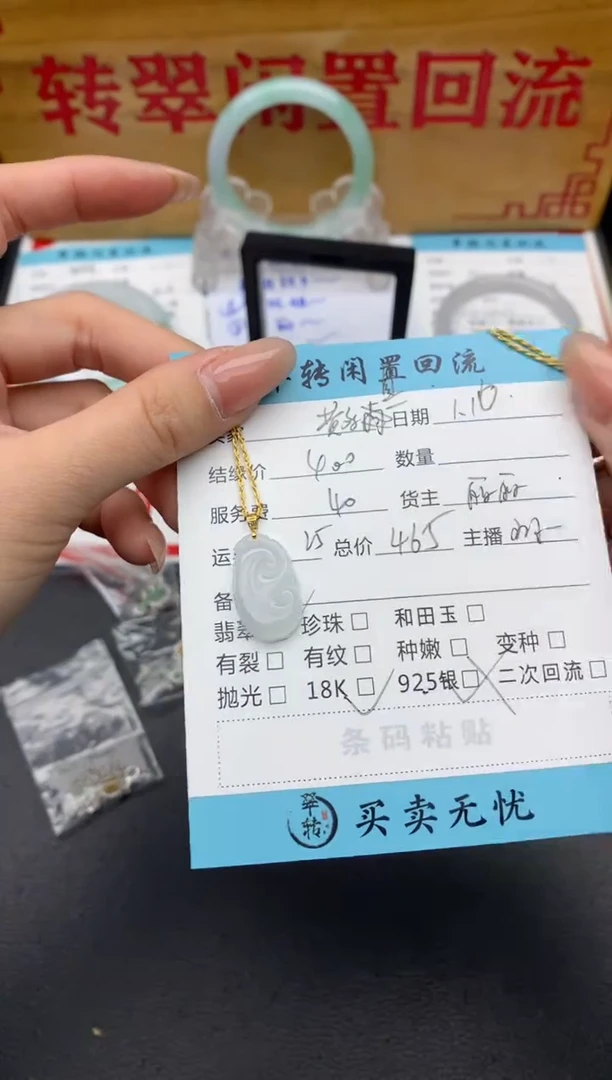 转翠闲置回流
转闲置回流
日期 1.16
结缘价 400 数量
服务费 40 货主 丽丽
运 15 总价 465 主播
备
翡翠 珍珠 □ 和田玉 □
有裂 □ 有纹 □ 种嫩 □ 变种 □
抛光 □ 18K □ 925银 □ 二次回流 □
条码粘贴
翠转 买卖无忧